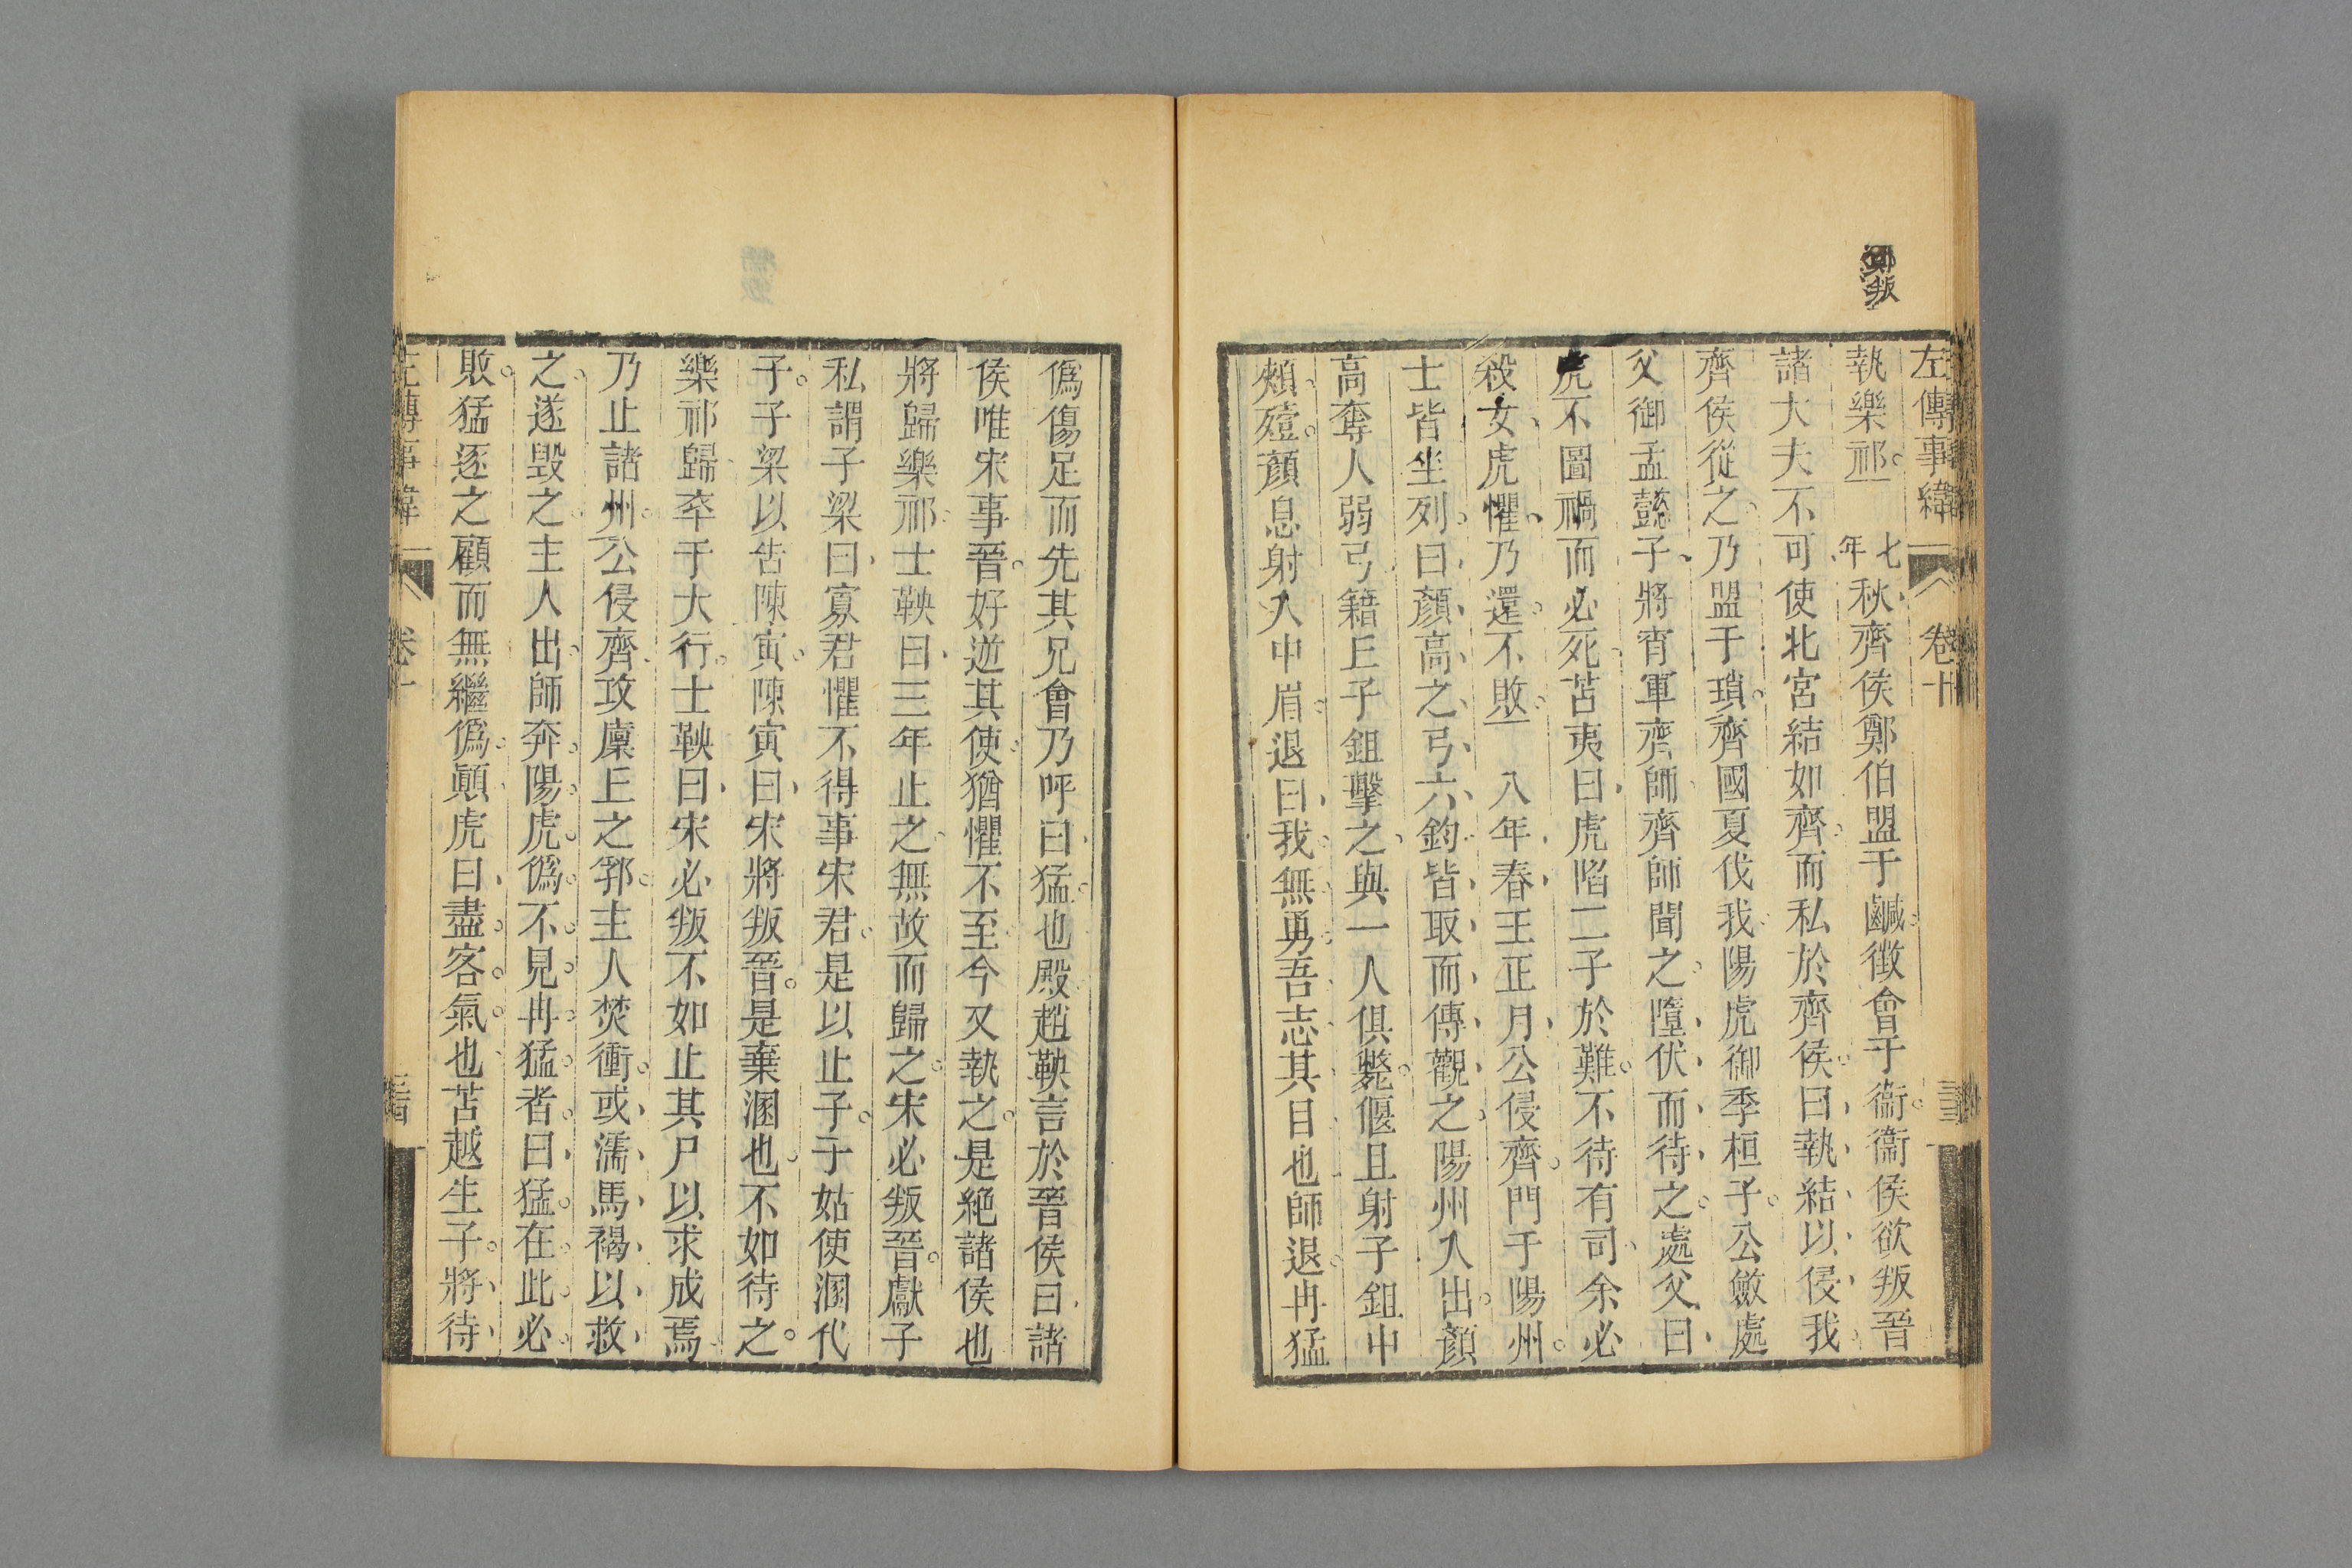 左傳事緯 卷十
執樂祁 七年秋齊侯鄭伯盟于鹹徵會于衞衞侯欲叛晉
諸大夫不可使北宮結如齊而私於齊侯曰執結以侵我
齊侯從之乃盟于瑣齊國夏伐我陽虎御季桓子公斂處
父御孟懿子將宵軍齊師齊師聞之墮伏而待之處父曰
虎不圖禍而必死苫夷曰虎陷二子於難不待有司余必
殺女虎懼乃還不敗 八年春王正月公侵齊門于陽州
士皆坐列曰顏高之弓六鈞皆取而傳觀之陽州人出顏
高奪人弱弓籍丘子鉏擊之與一人俱斃偃且射子鉏中
頰殪顏息射人中眉退曰我無勇吾志其目也師退冉猛
僞傷足而先其兄會乃呼曰猛也殿趙鞅言於晉侯曰諸
侯唯宋事晉好逆其使猶懼不至今又執之是絶諸侯也
將歸樂祁士鞅曰三年止之無故而歸之宋必叛晉獻子
私謂子梁曰寡君懼不得事宋君是以止子子姑使溷代
子子梁以告陳寅陳寅曰宋將叛晉是棄溷也不如待之
樂祁歸卒于大行士鞅曰宋必叛不如止其尸以求成焉
乃止諸州公侵齊攻廩丘之郛主人焚衝或濡馬褐以救
之遂毀之主人出師奔陽虎僞不見冉猛者曰猛在此必
敗猛逐之顧而無繼僞顚虎曰盡客氣也苫越生子將待